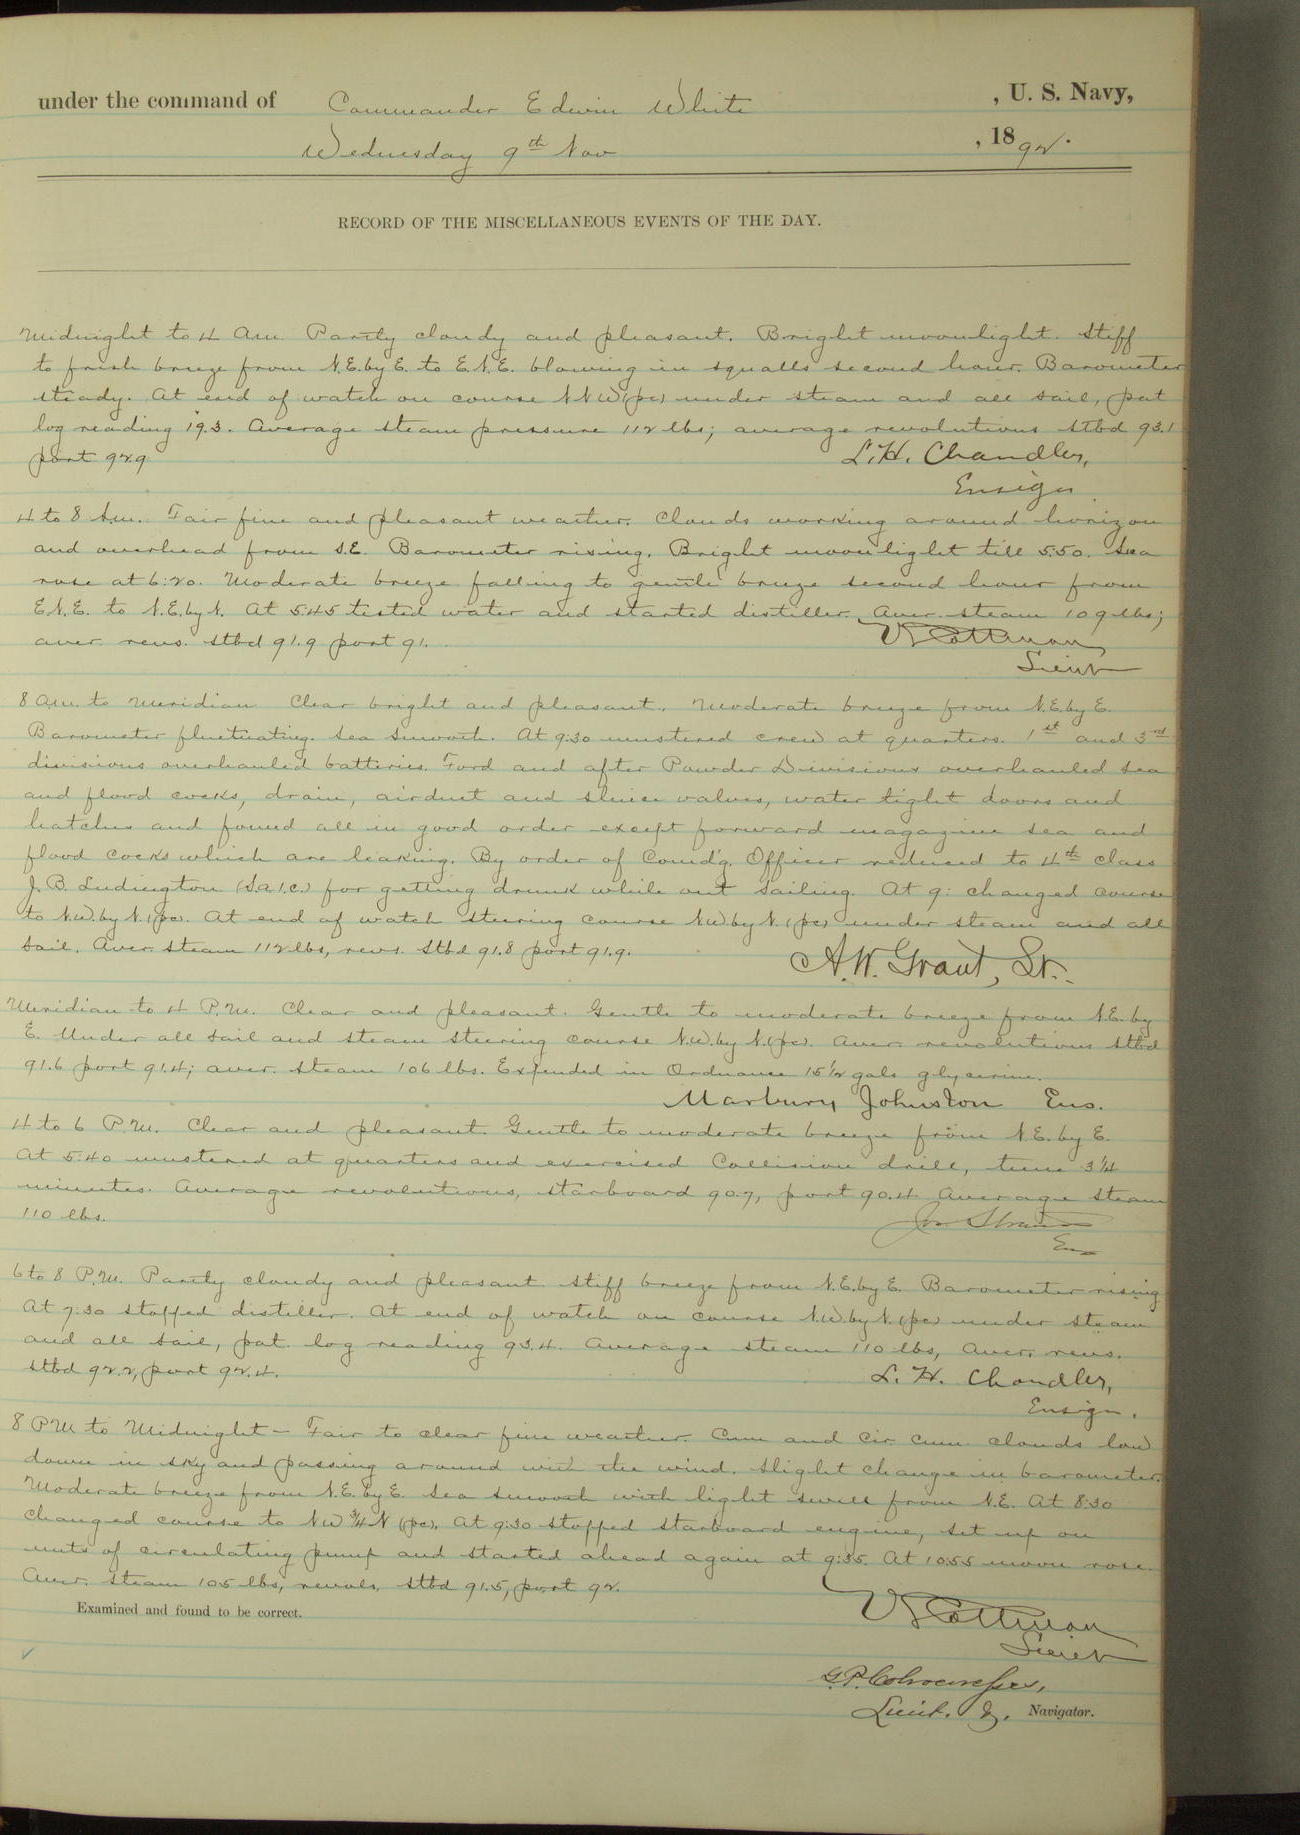 under the command of Commander Edwin White , U. S. Navy,
Wednesday 9th Nov , 1892.
RECORD OF THE MISCELLANEOUS EVENTS OF THE DAY.
Midnight to 4 Am. Partly cloudy and pleasant. Bright moonlight. Stiff
to fresh breeze from N.E. by E. to E.N.E. blowing in squalls second hour. Barometer
steady. At end of watch on course NNW (pc) under steam and all sail, pat
log reading 19.3. Average steam pressure 112 lbs; average revolutions stbd 93.1
port 92.9
L.H. Chandler,
Ensign.
4 to 8 Am. Fair fine and pleasant weather. Clouds working around horizon
and overhead from S.E. Barometer rising. Bright moonlight till 5:50. Sea
rose at 6:20. Moderate breeze falling to gentle breeze second hour from
E.N.E. to N.E. by N. At 5:45 tested water and started distiller. Aver. steam 109 lbs;
aver. revs. stbd 91.9 port 91.
V Cottman
Lieut
8 am. to Meridian Clear bright and pleasant. Moderate breeze from N.E. by E.
Barometer fluctuating. Sea smooth. At 9:30 mustered crew at quarters. 1st and 3rd
divisions overhauled batteries. Ford and after Powder Divisions overhauled sea
and flood cocks, drain, airduct and sluice valves, water tight doors and
hatches and found all in good order except forward magazine sea and
flood cocks which are leaking. By order of Comd'g. Officer reduced to 4th class
J. B. Ludington (S.a.1.c.) for getting drunk while out sailing. At 9: changed course
to N.W. by N. (pc). At end of watch steering course N.W. by N. (pc) under steam and all
sail. Aver. steam 112 lbs, revs. Stbd 91.8 port 91.9.
A.W. Grant, Lt.
Meridian to 4 P.M. Clear and pleasant. Gentle to moderate breeze from N.E. by
E. Under all sail and steam steering course N.W. by N. (pc). Aver. revolutions stbd
91.6 port 91.4; aver. steam 106 lbs. Expended in Ordnance 15½ gals glycerine.
Marbury Johnston Ens.
4 to 6 P.M. Clear and pleasant. Gentle to moderate breeze from N.E. by E.
At 5:40 mustered at quarters and exercised Collision drill, time 3¼
minutes. Average revolutions, starboard 90.7, port 90.4 Average steam
110 lbs.
Jos Strauss
Ens
6 to 8 P.M. Partly cloudy and pleasant stiff breeze from N.E. by E. Barometer rising
At 7:30 stopped distiller. At end of watch on course N.W. by N. (pc) under steam
and all sail, pat. log reading 93.4. Average steam 110 lbs, Aver. revs.
stbd 92.2, port 92.4.
L. H. Chandler,
Ensign.
8 PM to Midnight – Fair to clear fine weather. Cum and Cir cum clouds low
down in sky and passing around with the wind. Slight change in barometer.
Moderate breeze from N.E. by E. Sea smooth with light swell from N.E. At 8:30
changed course to NW ¾ N (pc). At 9:30 stopped starboard engine, set up on
nuts of circulating pump and started ahead again at 9:35. At 10:55 moon rose.
Aver. steam 105 lbs, revols. stbd 91.5, port 92.
Examined and found to be correct.
V Cottman
Lieut
G.P. Colvocoresses,
Lieut. & Navigator.